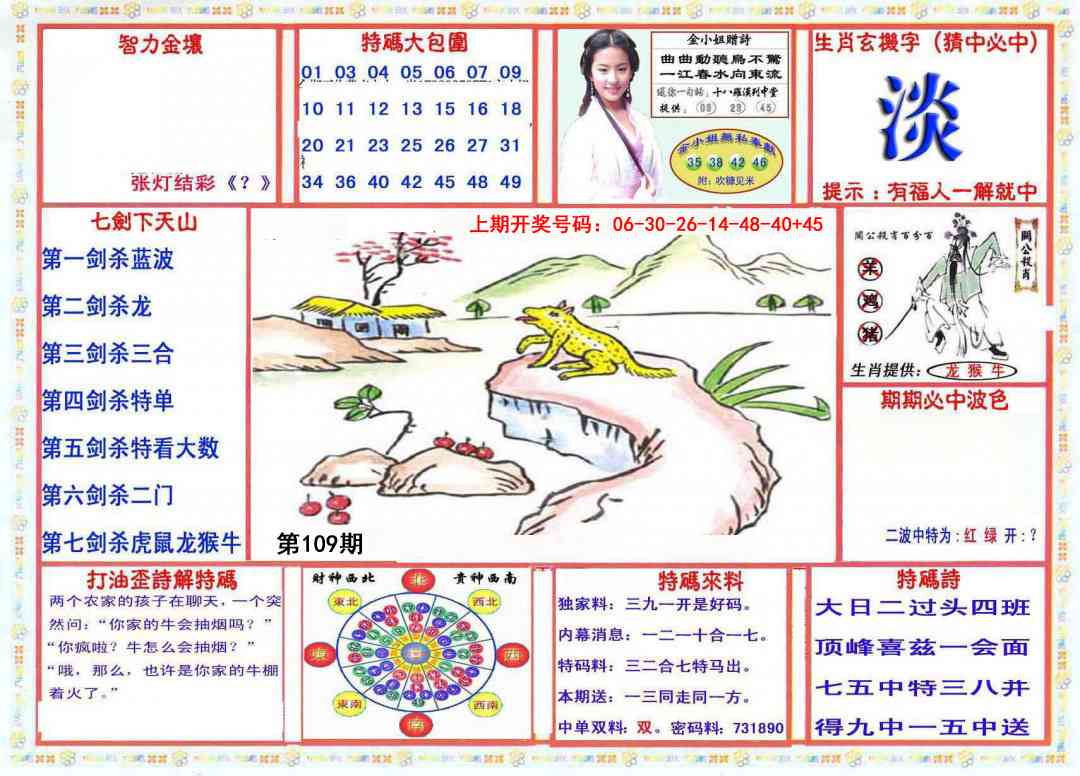 智力金壤
张灯结彩《？》
特碼大包圍
01 03 04 05 06 07 09
10 11 12 13 15 16 18
20 21 23 25 26 27 31
34 36 40 42 45 48 49
金小姐赠詩
曲曲動聽鳥不驚
一江春水向東流
送你一句話：十八羅漢列中堂
提供：(09) (23) (45)
金小姐無私奉獻
35 38 42 46
附：吹糠见米
生肖玄機字（猜中必中）
淡
提示：有福人一解就中
七劍下天山
第一剑杀蓝波
第二剑杀龙
第三剑杀三合
第四剑杀特单
第五剑杀特看大数
第六剑杀二门
第七剑杀虎鼠龙猴牛
上期开奖号码：06-30-26-14-48-40+45
第109期
關公殺肖百分百
關公殺肖
羊
鸡
猪
生肖提供：龙 猴 牛
期期必中波色
二波中特为：红 绿 开：？
打油歪詩解特碼
两个农家的孩子在聊天，一个突
然问：“你家的牛会抽烟吗？”
“你疯啦？牛怎么会抽烟？”
“哦，那么，也许是你家的牛棚
着火了。”
財神西北 貴神西南
北
東北 西北
東 西
東南 西南
南
特碼來料
独家料：三九一开是好码。
内幕消息：一二一十合一七。
特码料：三二合七特马出。
本期送：一三同走同一方。
中单双料：双。密码料：731890
特碼詩
大日二过头四班
顶峰喜兹一会面
七五中特三八并
得九中一五中送